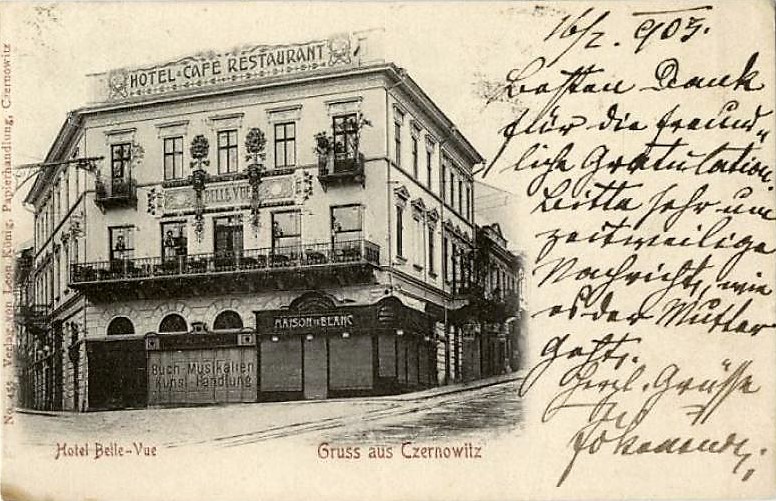 No. 455 Verlag von Leon König, Papierhandlung, Czernowitz
HOTEL CAFÉ RESTAURANT
BELLE-VUE
MAISON DE BLANC
Buch-Musikalien
Kunst-Handlung
Hotel Belle-Vue
Gruss aus Czernowitz
16/2. 905.
Besten Dank
für die freund-
liche Gratulation.
Bitte sehr um
zeitweilige
Nachricht, wie
es der Mutter
geht.
Herzl. Grüsse